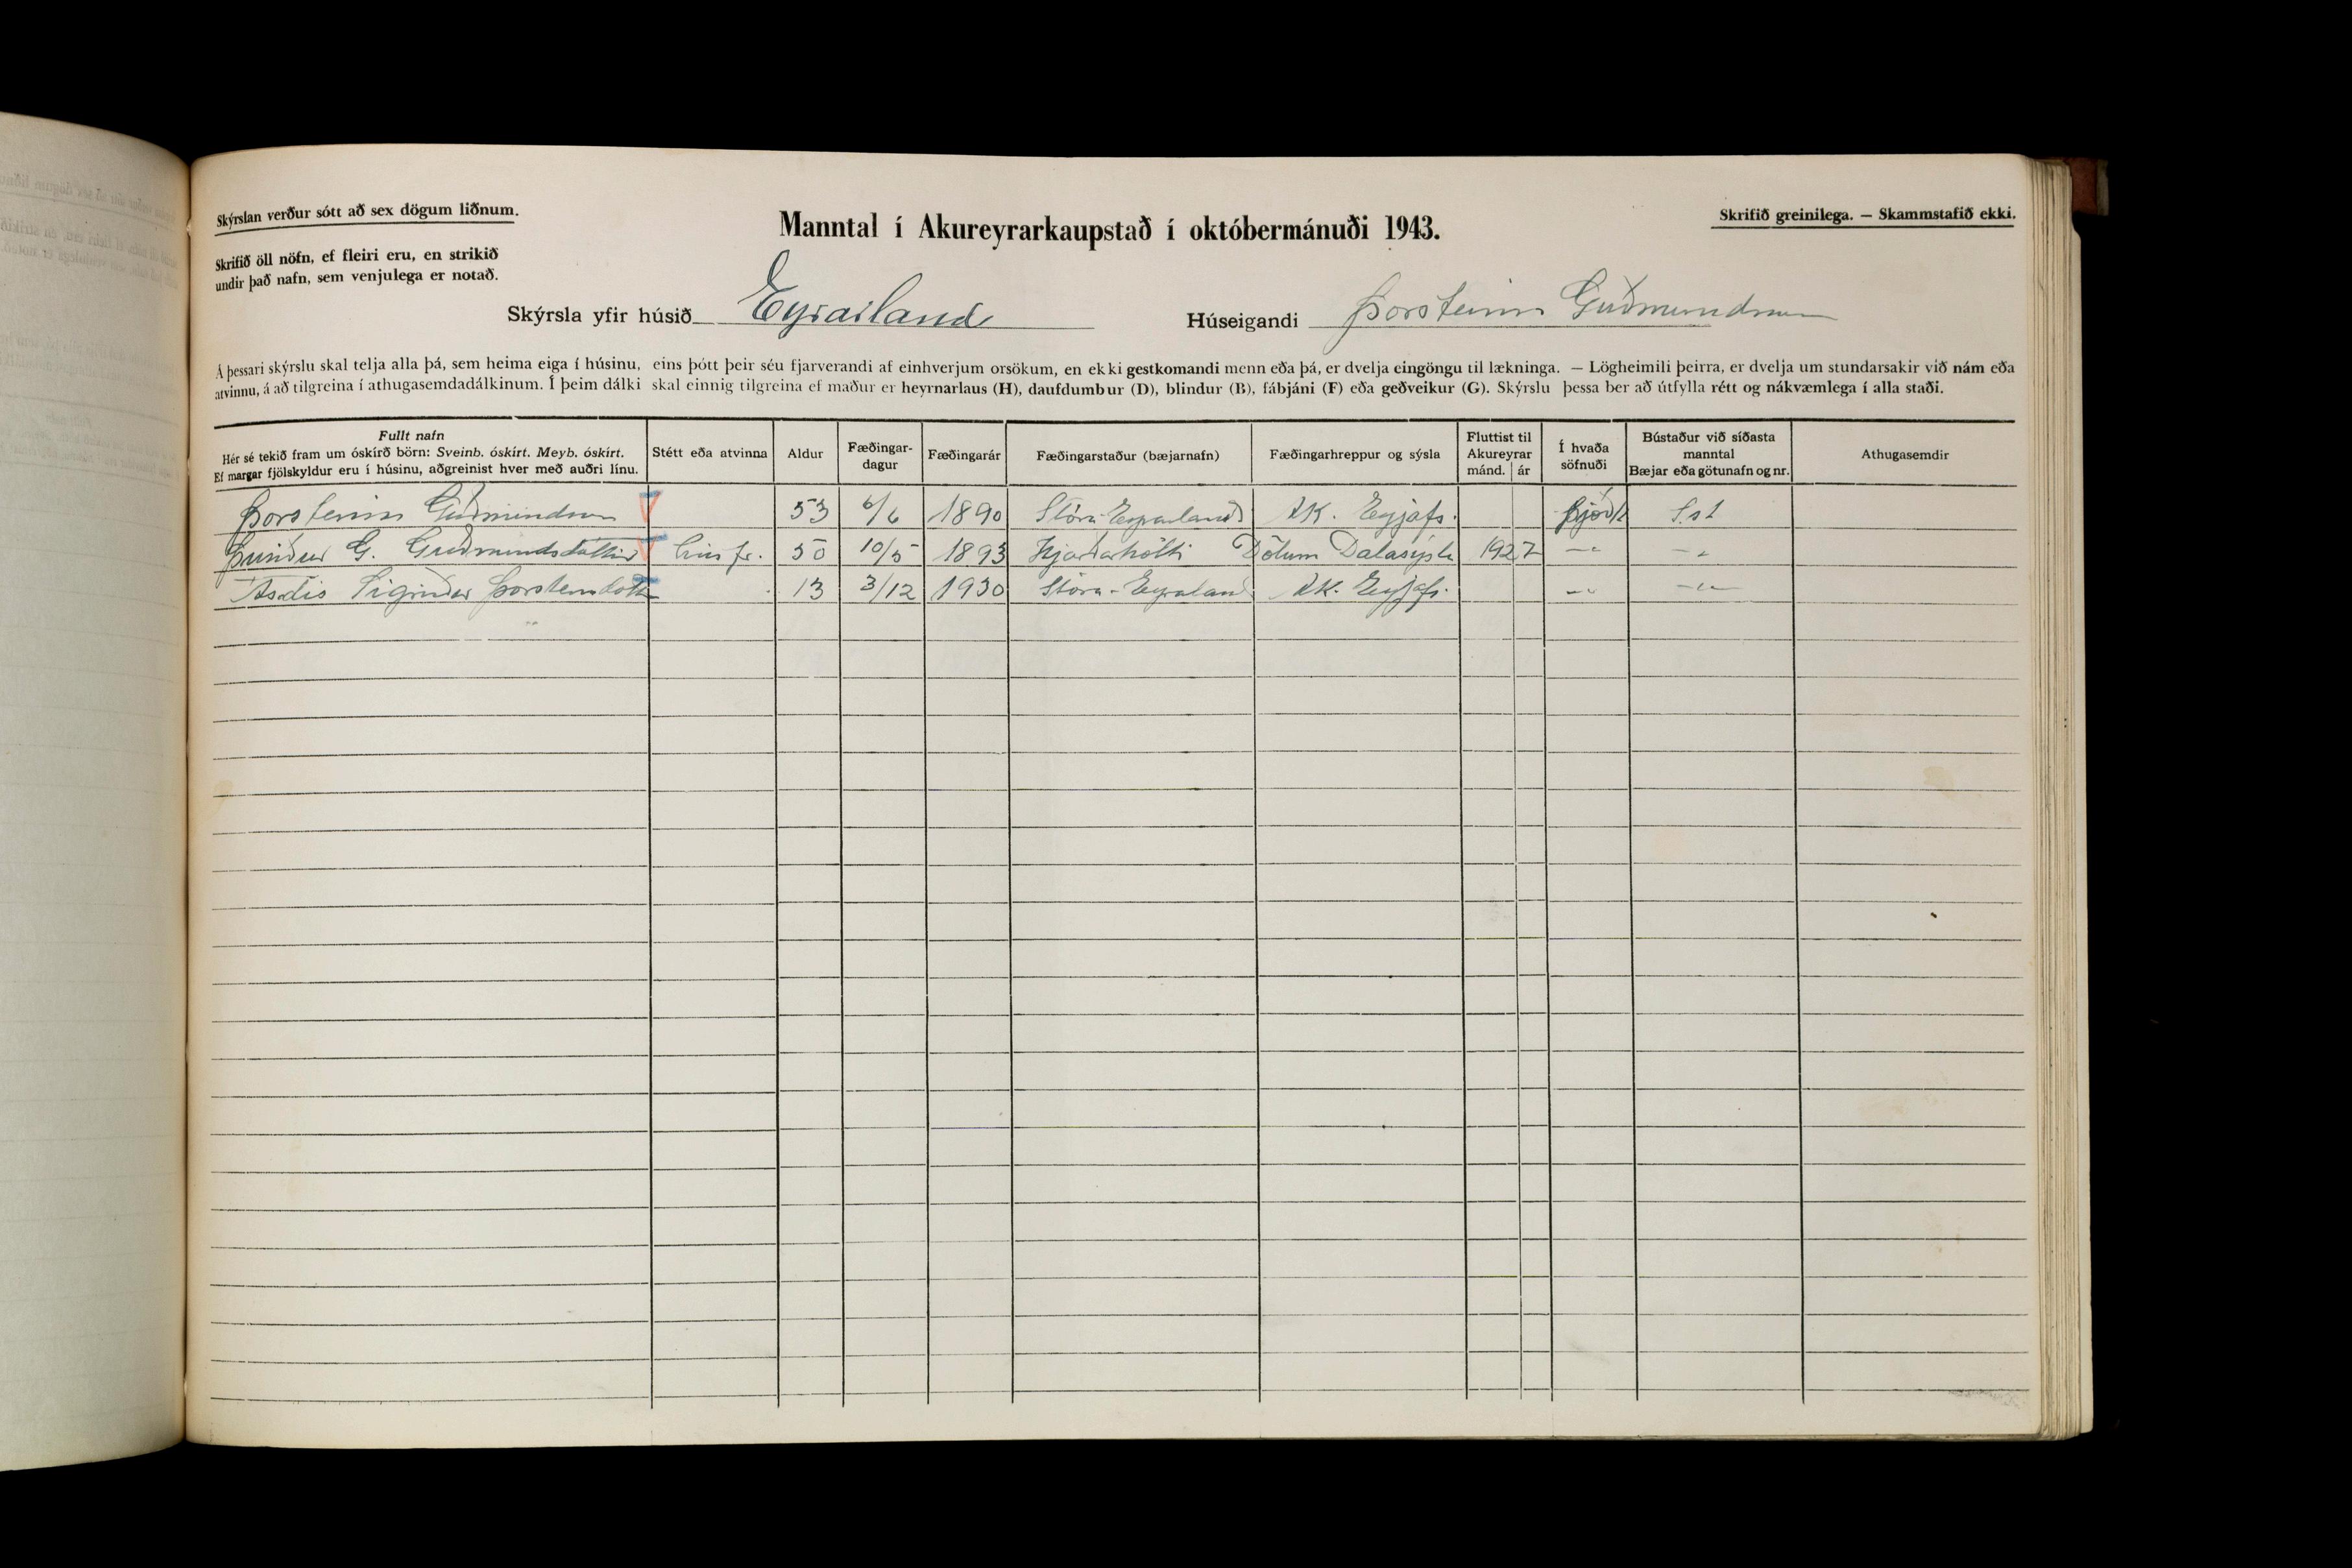 Skýrslan verður sótt að sex dögum liðnum.
Manntal í Akureyrarkaupstað í októbermánuði 1943.
Skrifið greinilega. — Skammstafið ekki.
Skrifið öll nöfn, ef fleiri eru, en strikið
undir það nafn, sem venjulega er notað.
Skýrsla yfir húsið Eyrarland Húseigandi Þorsteinn Guðmundsson
Á þessari skýrslu skal telja alla þá, sem heima eiga í húsinu, eins þótt þeir séu fjarverandi af einhverjum orsökum, en ekki gestkomandi menn eða þá, er dvelja eingöngu til lækninga. — Lögheimili þeirra, er dvelja um stundarsakir við nám eða
atvinnu, á að tilgreina í athugasemdadálkinum. Í þeim dálki skal einnig tilgreina ef maður er heyrnarlaus (H), daufdumbur (D), blindur (B), fábjáni (F) eða geðveikur (G). Skýrslu þessa ber að útfylla rétt og nákvæmlega í alla staði.
Fullt nafn
Hér sé tekið fram um óskírð börn: Sveinb. óskírt. Meyb. óskírt.
Ef margar fjölskyldur eru í húsinu, aðgreinist hver með auðri línu.
Stétt eða atvinna
Aldur
Fæðingar-
dagur
Fæðingarár
Fæðingarstaður (bæjarnafn)
Fæðingarhreppur og sýsla
Fluttist til
Akureyrar
mánd. ár
Í hvaða
söfnuði
Bústaður við síðasta
manntal
Bæjar eða götunafn og nr.
Athugasemdir
Þorsteinn Guðmundsson 53 6/6 1890 Stóra-Eyrarland AK. Eyjafs. Þjóðk
Þuríður G. Guðmundsdóttir hús fr. 50 10/5 1893 Hjarðarholti Dölum Dalasýsla 1927 —"— —"—
Ásdís Sigríður Þorsteinsdóttir 13 3/12 1930 Stóra-Eyraland AK. Eyjafs. —"— —"—